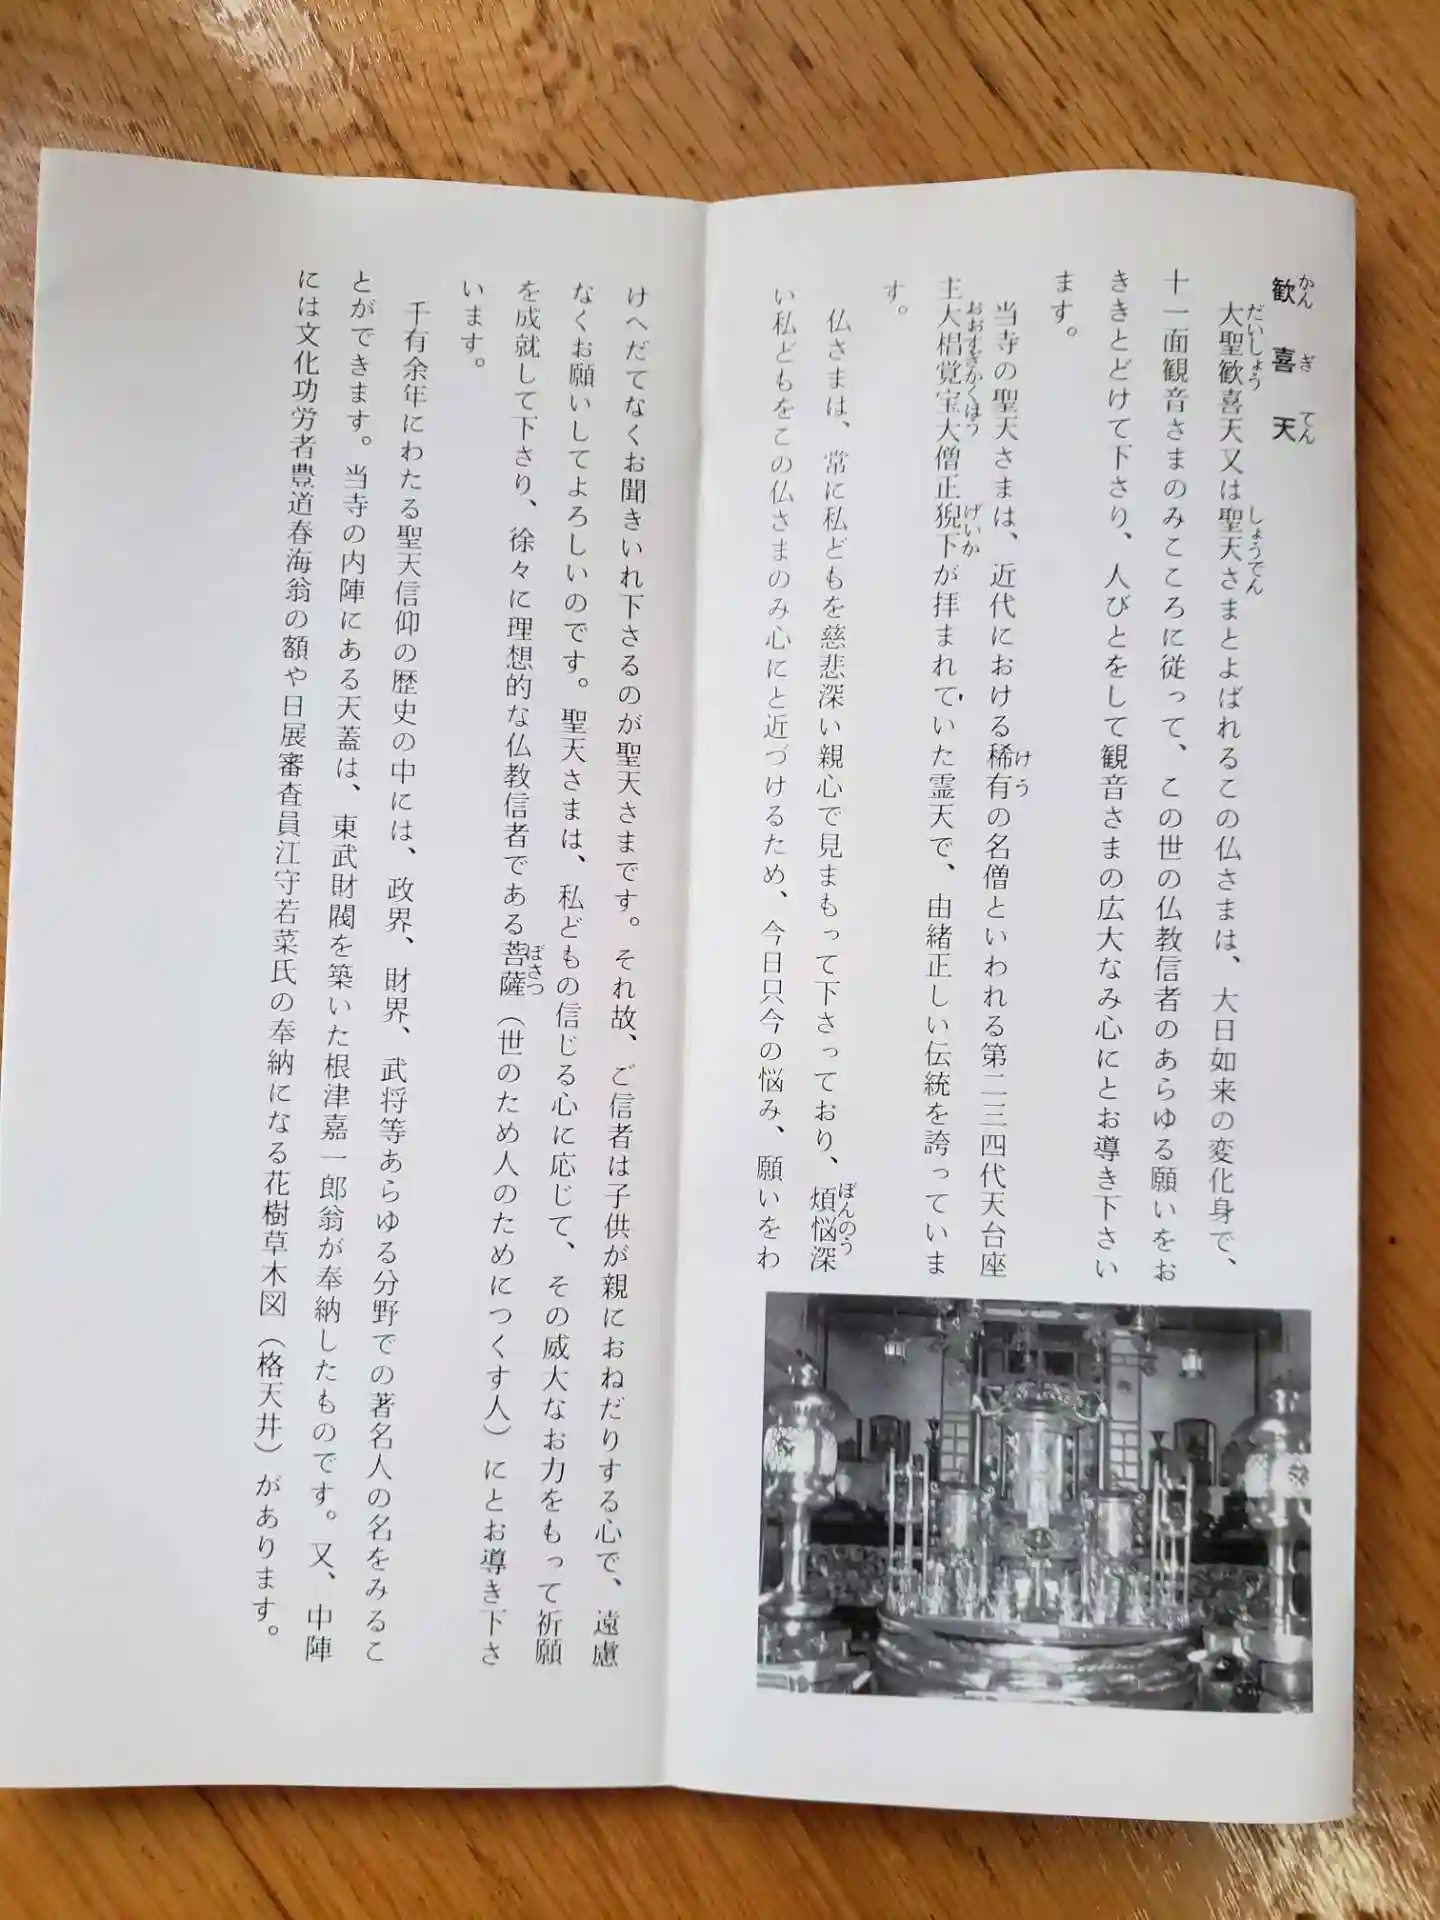 歓喜天
かんぎてん
大聖歓喜天又は聖天さまとよばれるこの仏さまは、大日如来の変化身で、
だいしょう
しょうでん
十一面観音さまのみこころに従って、この世の仏教信者のあらゆる願いをお
ききとどけて下さり、人びとをして観音さまの広大なみ心にとお導き下さい
ます。
当寺の聖天さまは、近代における稀有の名僧といわれる第二三四代天台座
けう
主大椙覚宝大僧正猊下が拝まれていた霊天で、由緒正しい伝統を誇っていま
おおすぎかくほう
げいか
す。
仏さまは、常に私どもを慈悲深い親心で見まもって下さっており、煩悩深
ぼんのう
い私どもをこの仏さまのみ心にと近づけるため、今日只今の悩み、願いをわ
けへだてなくお聞きいれ下さるのが聖天さまです。それ故、ご信者は子供が親におねだりする心で、遠慮
なくお願いしてよろしいのです。聖天さまは、私どもの信じる心に応じて、その威大なお力をもって祈願
を成就して下さり、徐々に理想的な仏教信者である菩薩（世のため人のためにつくす人）にとお導き下さ
ぼさつ
います。
千有余年にわたる聖天信仰の歴史の中には、政界、財界、武将等あらゆる分野での著名人の名をみるこ
とができます。当寺の内陣にある天蓋は、東武財閥を築いた根津嘉一郎翁が奉納したものです。又、中陣
には文化功労者豊道春海翁の額や日展審査員江守若菜氏の奉納になる花樹草木図（格天井）があります。